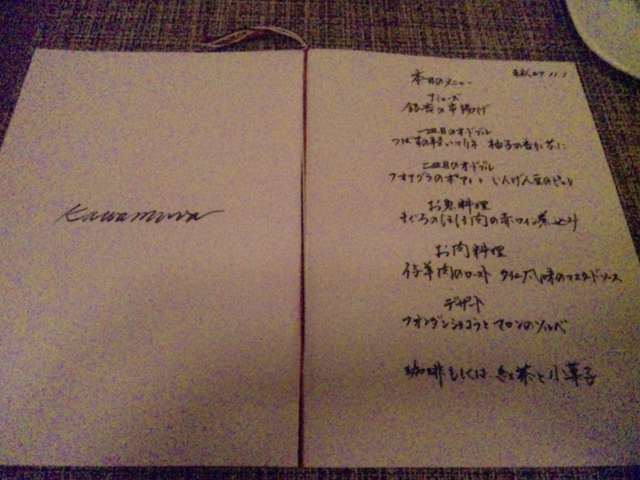 Kawamura
本日のメニュー
アミューズ
銀杏の素揚げ
一皿目のオードブル
二皿目のオードブル
フォアグラのポアレと いんげん豆の
お魚料理
まぐろのほほ肉の赤ワイン煮込み
お肉料理
仔羊肉のロースト タイム風味のマスタードソース
デザート
フォンダンショコラとマロンのソルベ
珈琲もしくは 紅茶と小菓子